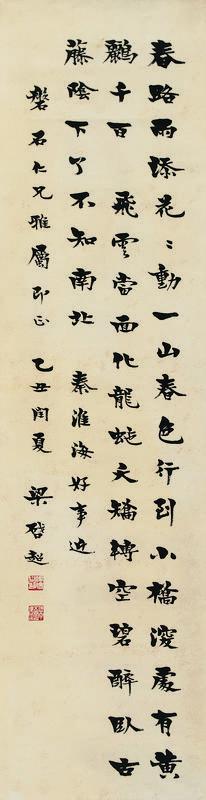 春路雨添花花動一山春色行到小橋深處有黃
鸝千百 飛雲當面化龍蛇夭矯轉空碧醉臥古
藤陰下了不知南北 秦淮海好事近
磐石仁兄雅屬即正 乙丑閏夏 梁啓超